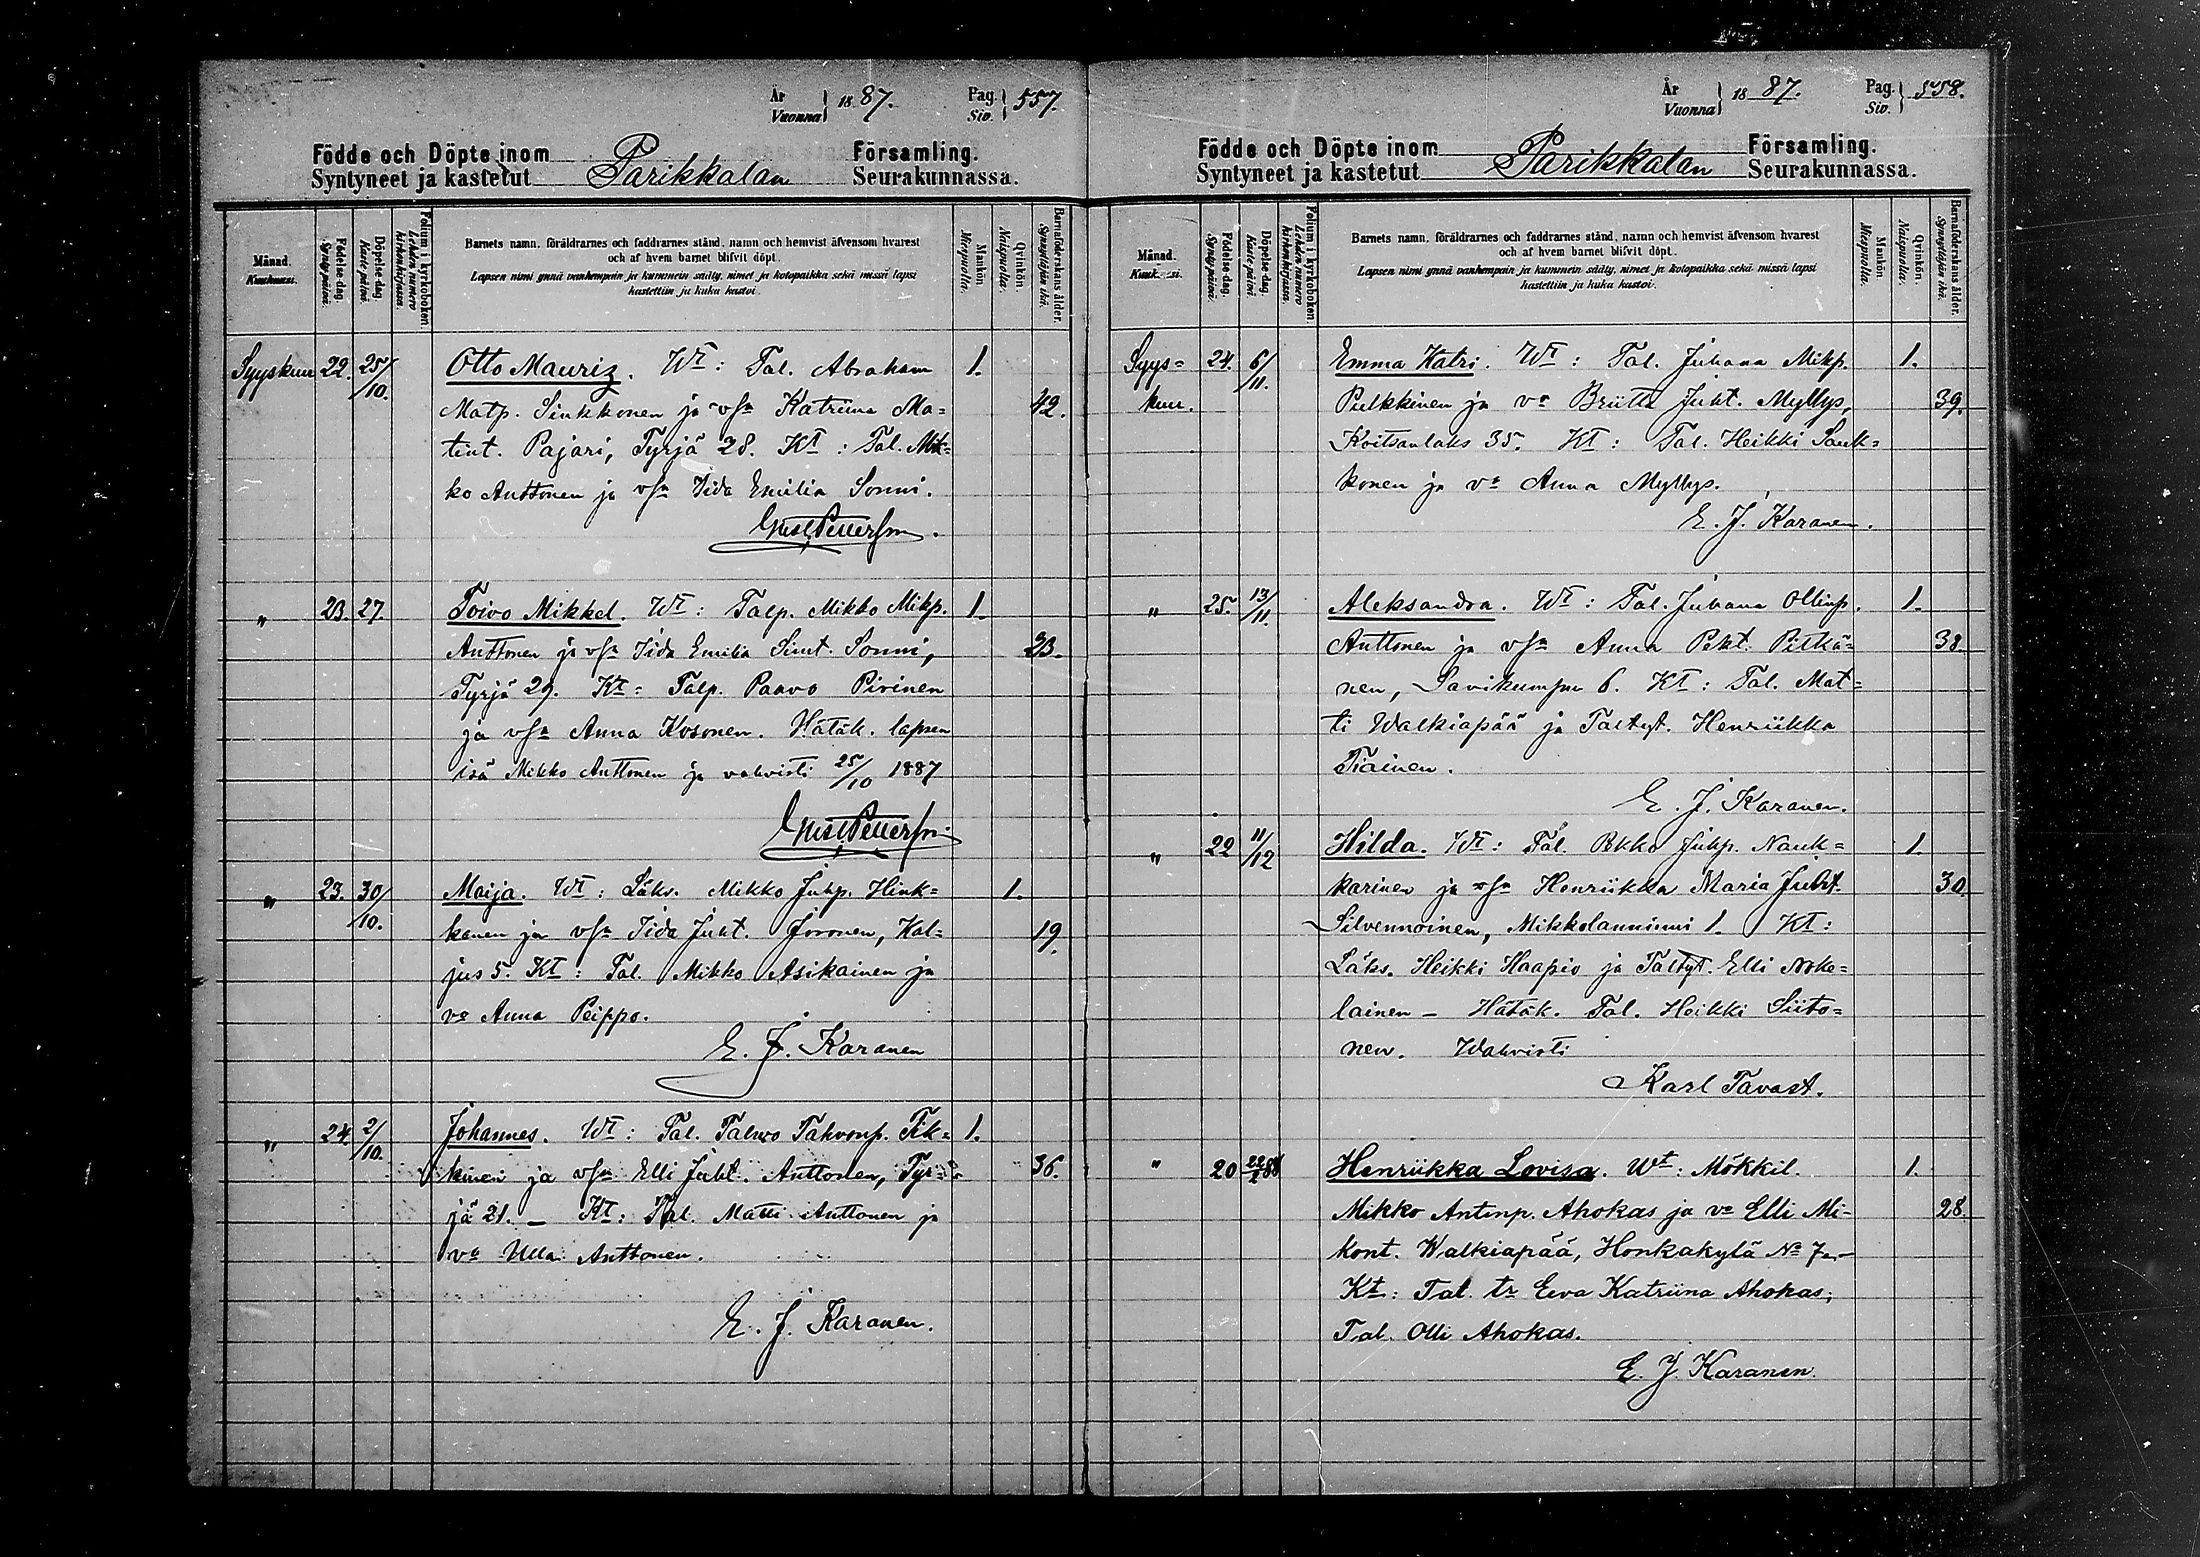 År
Vuonna 1887.
Pag.
Siv. 557.
Födde och Döpte inom Församling.
Syntyneet ja kastetut Parikkalan Seurakunnassa.
Månad.
Kuukausi.
Födelse-dag.
Syntypäivä.
Döpelse-dag.
Kaste-päivä.
Folium i kyrkoboken.
Lehden numero kirkonkirjassa.
Barnets namn, föräldrarnes och faddrarnes stånd, namn och hemvist äfvensom hvarest
och af hvem barnet blifvit döpt.
Lapsen nimi ynnä vanhempain ja kummein sääty, nimet ja kotopaikka sekä missä lapsi
kastettiin ja kuka kastoi.
Mankön.
Miespuolta.
Qvinkön.
Naispuolta.
Barnaföderskans ålder.
Synnyttäjän ikä.
Syyskuu 22. 25/10. Otto Mauriz. Wt: Tal. Abraham 1.
Matp. Sinkkonen ja vsa Katriina Ma= 42.
tint. Pajari, Tyrjä 28. Kt: Tal. Mik=
ko Anttonen ja vsa Iida Emilia Sonni.
" 23. 27. Toivo Mikkel. Wt: Talp. Mikko Mikp. 1.
Anttonen ja vsa Iida Emilia Simt. Sonni, 23.
Tyrjä 29. Kt: Talp. Paavo Pirinen
ja vsa Anna Kosonen. Hätäk. lapsen
isä Mikko Anttonen ja vahvisti 25/10 1887
" 23. 30/10. Maija. Wt: Läks. Mikko Juhp. Hink= 1.
kanen ja vsa Iida Juht. Joronen, Kal= 19.
jus 5. Kt: Tal. Mikko Asikainen ja
va Anna Peippo.
E. J. Karanen
" 24. 2/10. Johannes. Wt: Tal. Tahvo Tahvonp. Tik= 1.
kinen ja vsa Elli Juht. Anttonen, Tyr= 36.
jä 21. — Kt: Tal. Matti Anttonen ja
va Ulla Anttonen.
E. J. Karanen.
År
Vuonna 1887.
Pag.
Siv. 558.
Födde och Döpte inom Församling.
Syntyneet ja kastetut Parikkalan Seurakunnassa.
Månad.
Kuukausi.
Födelse-dag.
Syntypäivä.
Döpelse-dag.
Kaste-päivä.
Folium i kyrkoboken.
Lehden numero kirkonkirjassa.
Barnets namn, föräldrarnes och faddrarnes stånd, namn och hemvist äfvensom hvarest
och af hvem barnet blifvit döpt.
Lapsen nimi ynnä vanhempain ja kummein sääty, nimet ja kotopaikka sekä missä lapsi
kastettiin ja kuka kastoi.
Mankön.
Miespuolta.
Qvinkön.
Naispuolta.
Barnaföderskans ålder.
Synnyttäjän ikä.
Syys= 24. 6/11. Emma Katri. Wt: Tal. Juhana Mikp. 1.
kuu. Pulkkinen ja va Briitta Juht. Myllys, 39.
Koitsanlaks 35. Kt: Tal. Heikki Sauk=
konen ja va Anna Myllys.
E. J. Karanen.
" 25. 13/11. Aleksandra. Wt: Tal. Juhana Ollinp. 1.
Anttonen ja vsa Anna Pekt. Pitkä= 38.
nen, Savikumpu 6. Kt: Tal. Mat=
ti Walkiapää ja Taltyt. Henriikka
Tiainen.
E. J. Karanen.
" 22 11/12 Hilda. Wt: Tal. Pekka Juhp. Nauk= 1.
karinen ja vsa Henriikka Maria Juht. 30.
Silvennoinen, Mikkolanniemi 1. Kt:
Läks. Heikki Haapio ja Taltyt. Elli Noke=
lainen — Hätäk. Tal. Heikki Siito=
nen. Wahvisti
Karl Tavast.
" 20 22/1 88 Henriikka Lovisa. Wt: Mökkil. 1.
Mikko Antinp. Ahokas ja va Elli Mi= 28.
kont. Walkiapää, Honkakylä No 7. —
Kt: Tal. tr Eeva Katriina Ahokas;
Tal. Olli Ahokas.
E. J. Karanen.